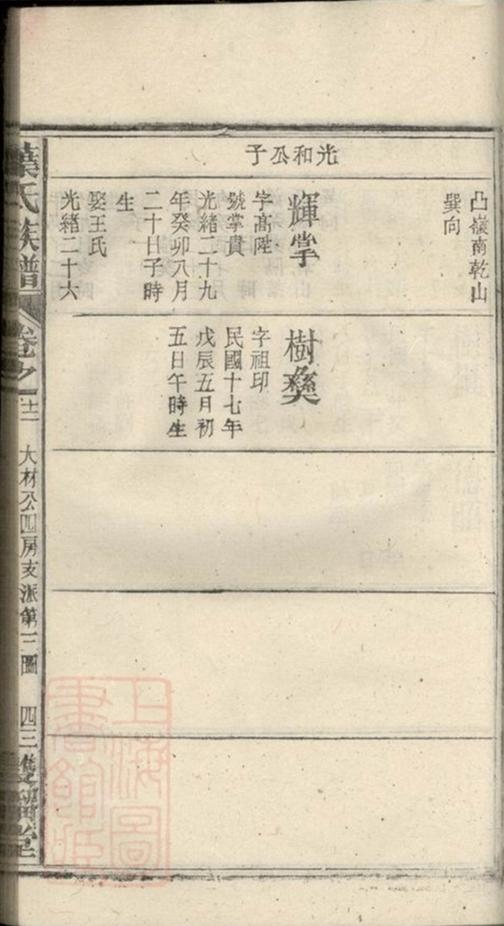 光和公子
凸嶺南乾山
巽向
輝掌
字高陞
號掌貴
光緒二十九
年癸卯八月
二十日子時
生
娶王氏
光緒二十六
樹彝
字祖印
民國十七年
戊辰五月初
五日午時生
葉氏族譜
卷之十二
大材公四房亥派第三圖
四三
上海圖
書館